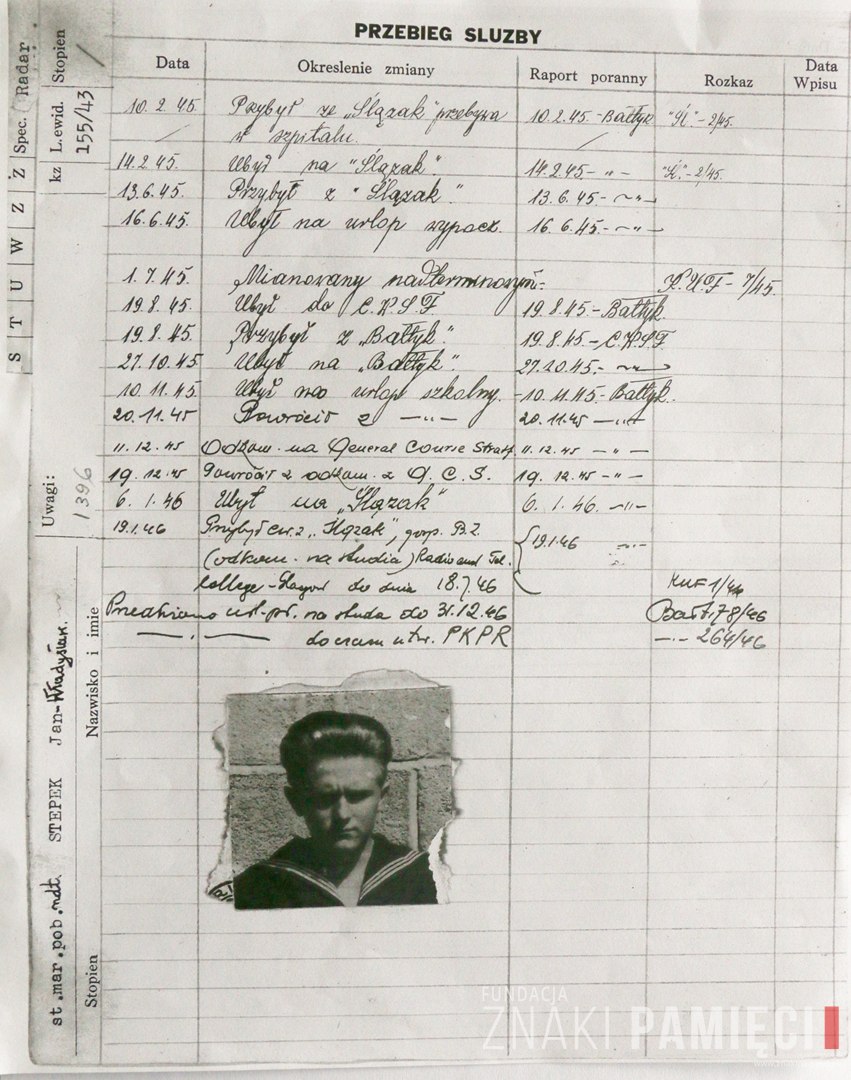 PRZEBIEG SLUZBY
Data Okreslenie zmiany Raport poranny Rozkaz Data Wpisu
10.2.45. Przybył ze „Ślązak" przebywa 10.2.45 - Bałtyk "Śl" - 2/45.
w szpitalu.
14.2.45. Ubył na "Ślązak" 14.2.45 - " - "Śl." - 2/45.
13.6.45. Przybył z "Ślązak". 13.6.45 - " -
16.6.45. Ubył na urlop wypocz. 16.6.45. - " -
1.7.45. Mianowany nadterminowym. K.U.F - 7/45.
19.8.45. Ubył do C.K.S.F 19.8.45. - Bałtyk.
19.8.45. Przybył z „Bałtyk". 19.8.45 - C.K.S.F
27.10.45 Ubył na „Bałtyk". 27.10.45. - " -
10.11.45 Ubył na urlop szkolny. 10.11.45 - Bałtyk.
20.11.45 Powrócił z - " - 20.11.45 - " -
11.12.45 Odkom. na General Course 11.12.45 - " -
19.12.45 Powrócił z odkom. z G.C.S. 19.12.45 - " -
6.1.46 Ubył na „Ślązak" 6.1.46. - " -
19.1.46 Przybył z „Ślązak", B.Z. 19.1.46 - " -
(odkom. na studia) Radio and Tel.
College - do dnia 18.7.46 KUF 1/46
Przedłużono url. na studia do 31.12.46 Bałt. 78/46
— . — do czasu utw. PKPR — . — 264/46
S T U W Z Ż
Spec. Radar
kz L. ewid. 255/43 Stopien /
Uwagi: 1396
Nazwisko i imie STEPEK Jan-Władysław
Stopien st.mar.pob.ndt.
FUNDACJA
ZNAKI PAMIĘCI